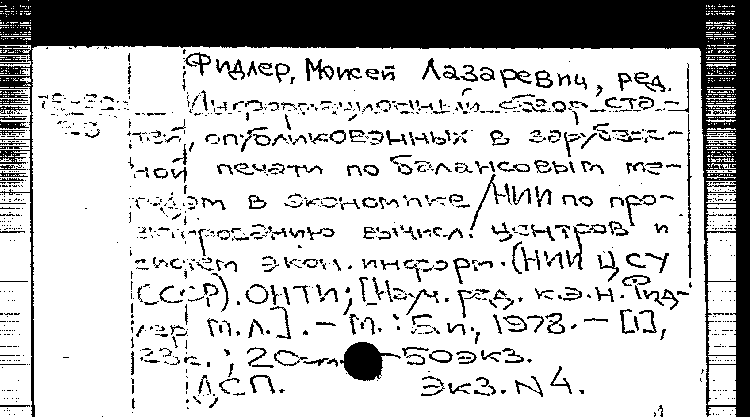 Фидлер, Моисей Лазаревич, ред.
Информационный обзор ста-
тей, опубликованных в зарубеж-
ной печати по балансовым ме-
тодам в экономике / НИИ по про-
ектированию вычисл. центров и
систем экон. информ. (НИИ ЦСУ
СССР). ОНТИ; [Науч. ред. к.э.н. Фид-
лер М.Л.]. - М. : Б.и., 1978. - [1],
23с. ; 20см - 50экз.
ДСП. Экз. N 4.